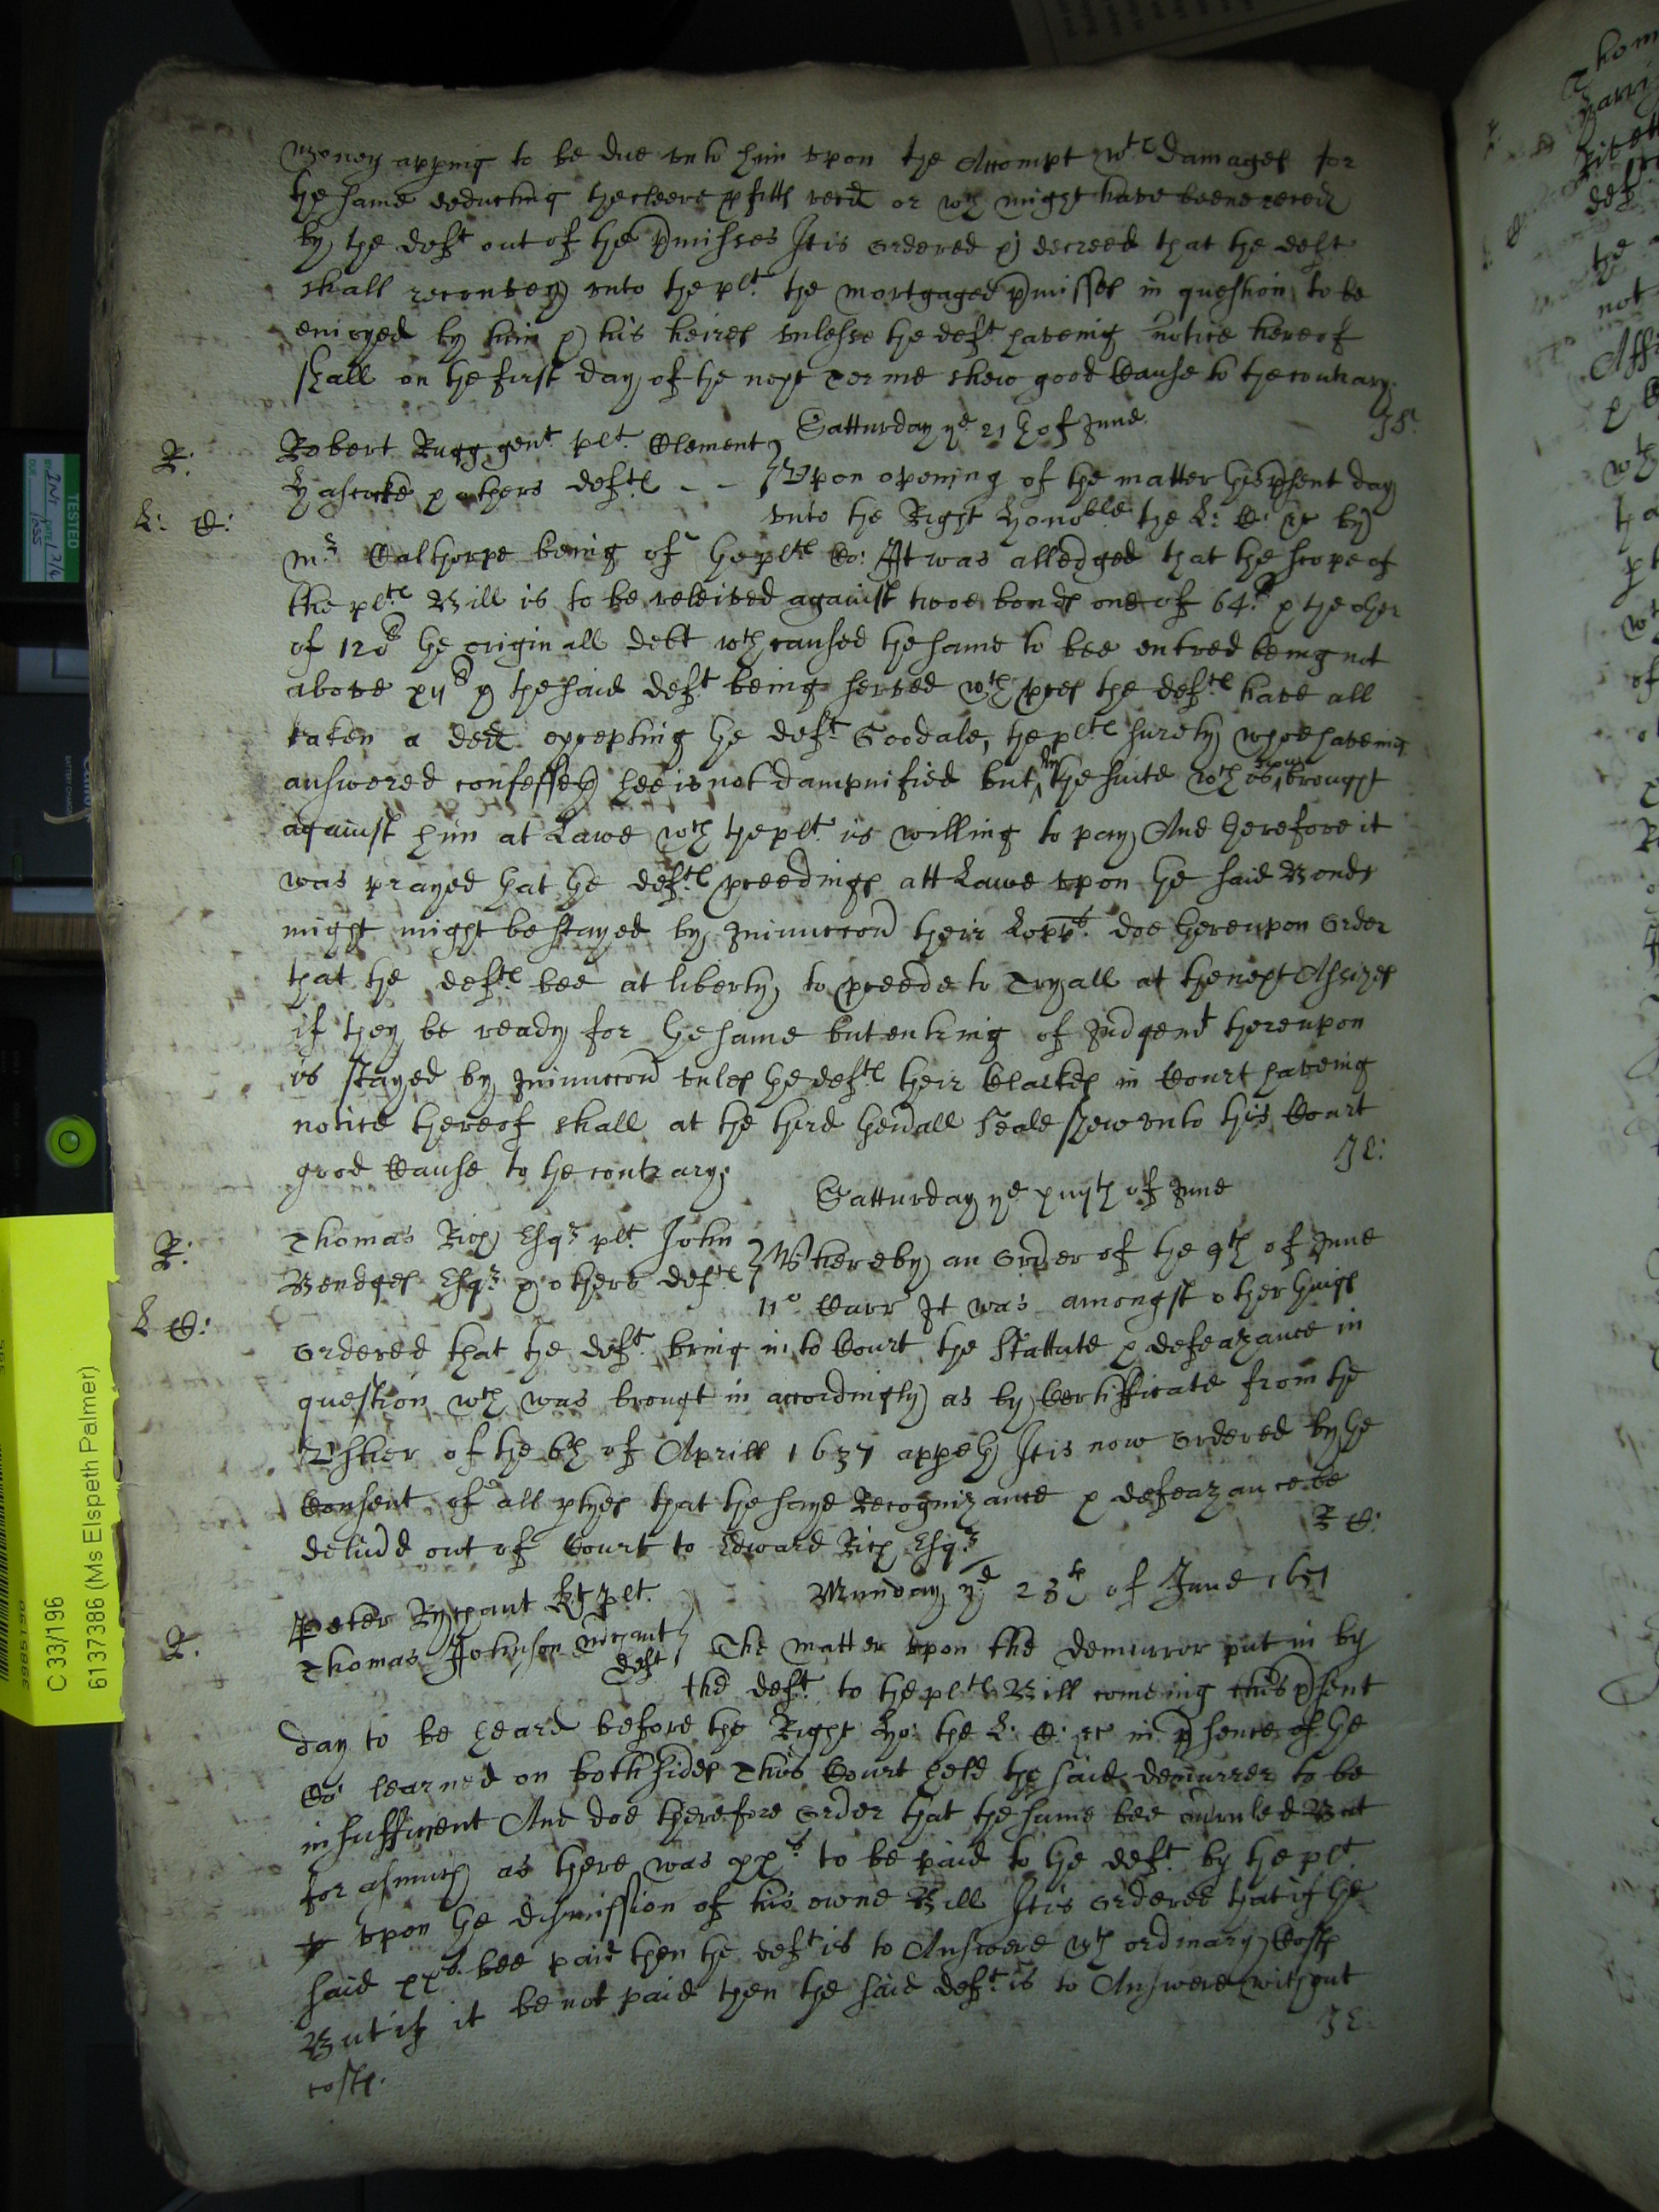 money apping to be due unto him upon the Accompt wth damages for
the same deducting the cleere pfitts recd or wch might have beene reced
by the deft out of the pmisses It is ordered & decreed that the deft
shall reconvey unto the plt the mortgaged pmisses in question to be
enioyed by him & his heires unlesse the deft haveing notice hereof
shall on the first day of the next Terme shew good Cause to the contrary.
Satturday ye 21th of June
R:
Robert Rugg gent plt Clement
& others defts - -
Upon opening of the matter this psent day
L: C:
unto the Right Honoble the L: C: &c by
mr Calthorpe being of the plts Co: It was alledged that the scope of
the plts Bill is to be releived against twoe bonds one of 64l & the other
of 120l the originall debt wch caused the same to bee entred being not
above the said deft being served wth pces the defts have all
taken a ded excepting the deft Goodale, the plts surety whoe haveing
answered confesseth hee is not dampnified but in the suite wch is brought
against him at Lawe wch the plt is willing to pay And therefore it
was prayed that the defts pceedings att Lawe upon the said Bonds
might might be stayed by Iniunccon their Lopps doe thereupon order
that the defts bee at liberty to pceede to Tryall at the next Assizes
if they be ready for the same but entring of Judgemt thereupon
is stayed by Iniunccon unles the defts their Clarkes in Court haveing
notice thereof shall at the third genall Seale shew unto this Court
good Cause to the contrary.
Satturday ye xiiijth of June
R:
Thomas Rich Esqr plt John
Bendges Esqr & others defts
Whereby an order of the 9th of June
L C:
11o Carr It was amongst other things
ordered that the deft bring in to Court the Stattute & defeazance in
question wch was brougt in accordingly as by Certifficate from the
Usher of the 6th of Aprill 1637 appeth It is now ordered by the
Consent of all ptyes that the sayd Recognizance & defeazance be
delivd out of Court to Edward Rich Esqr
R C:
Munday ye 23th of June 1651
R.
Peter Rychaut Kt plt
Thomas Johnson mrchant
deft
The matter upon the demurror put in by
the deft to the plts Bill comeing this psent
day to be heard before the Right Ho: the L: C: &c in psence of the
Co: learned on both sides This Court held the said demurrer to be
insufficient And doe therefore order that the same bee overruled But
for asmuch as there was xxs to be paid to the deft by the plt
upon the dismission of his owne Bill It is ordered that if the
said xxs bee paid then the deft is to Answere wth ordinary Costs
But if it be not paid then the said deft is to Answere without
costs.
TESTED
C 33/196
6137386 (Ms Elspeth Palmer)